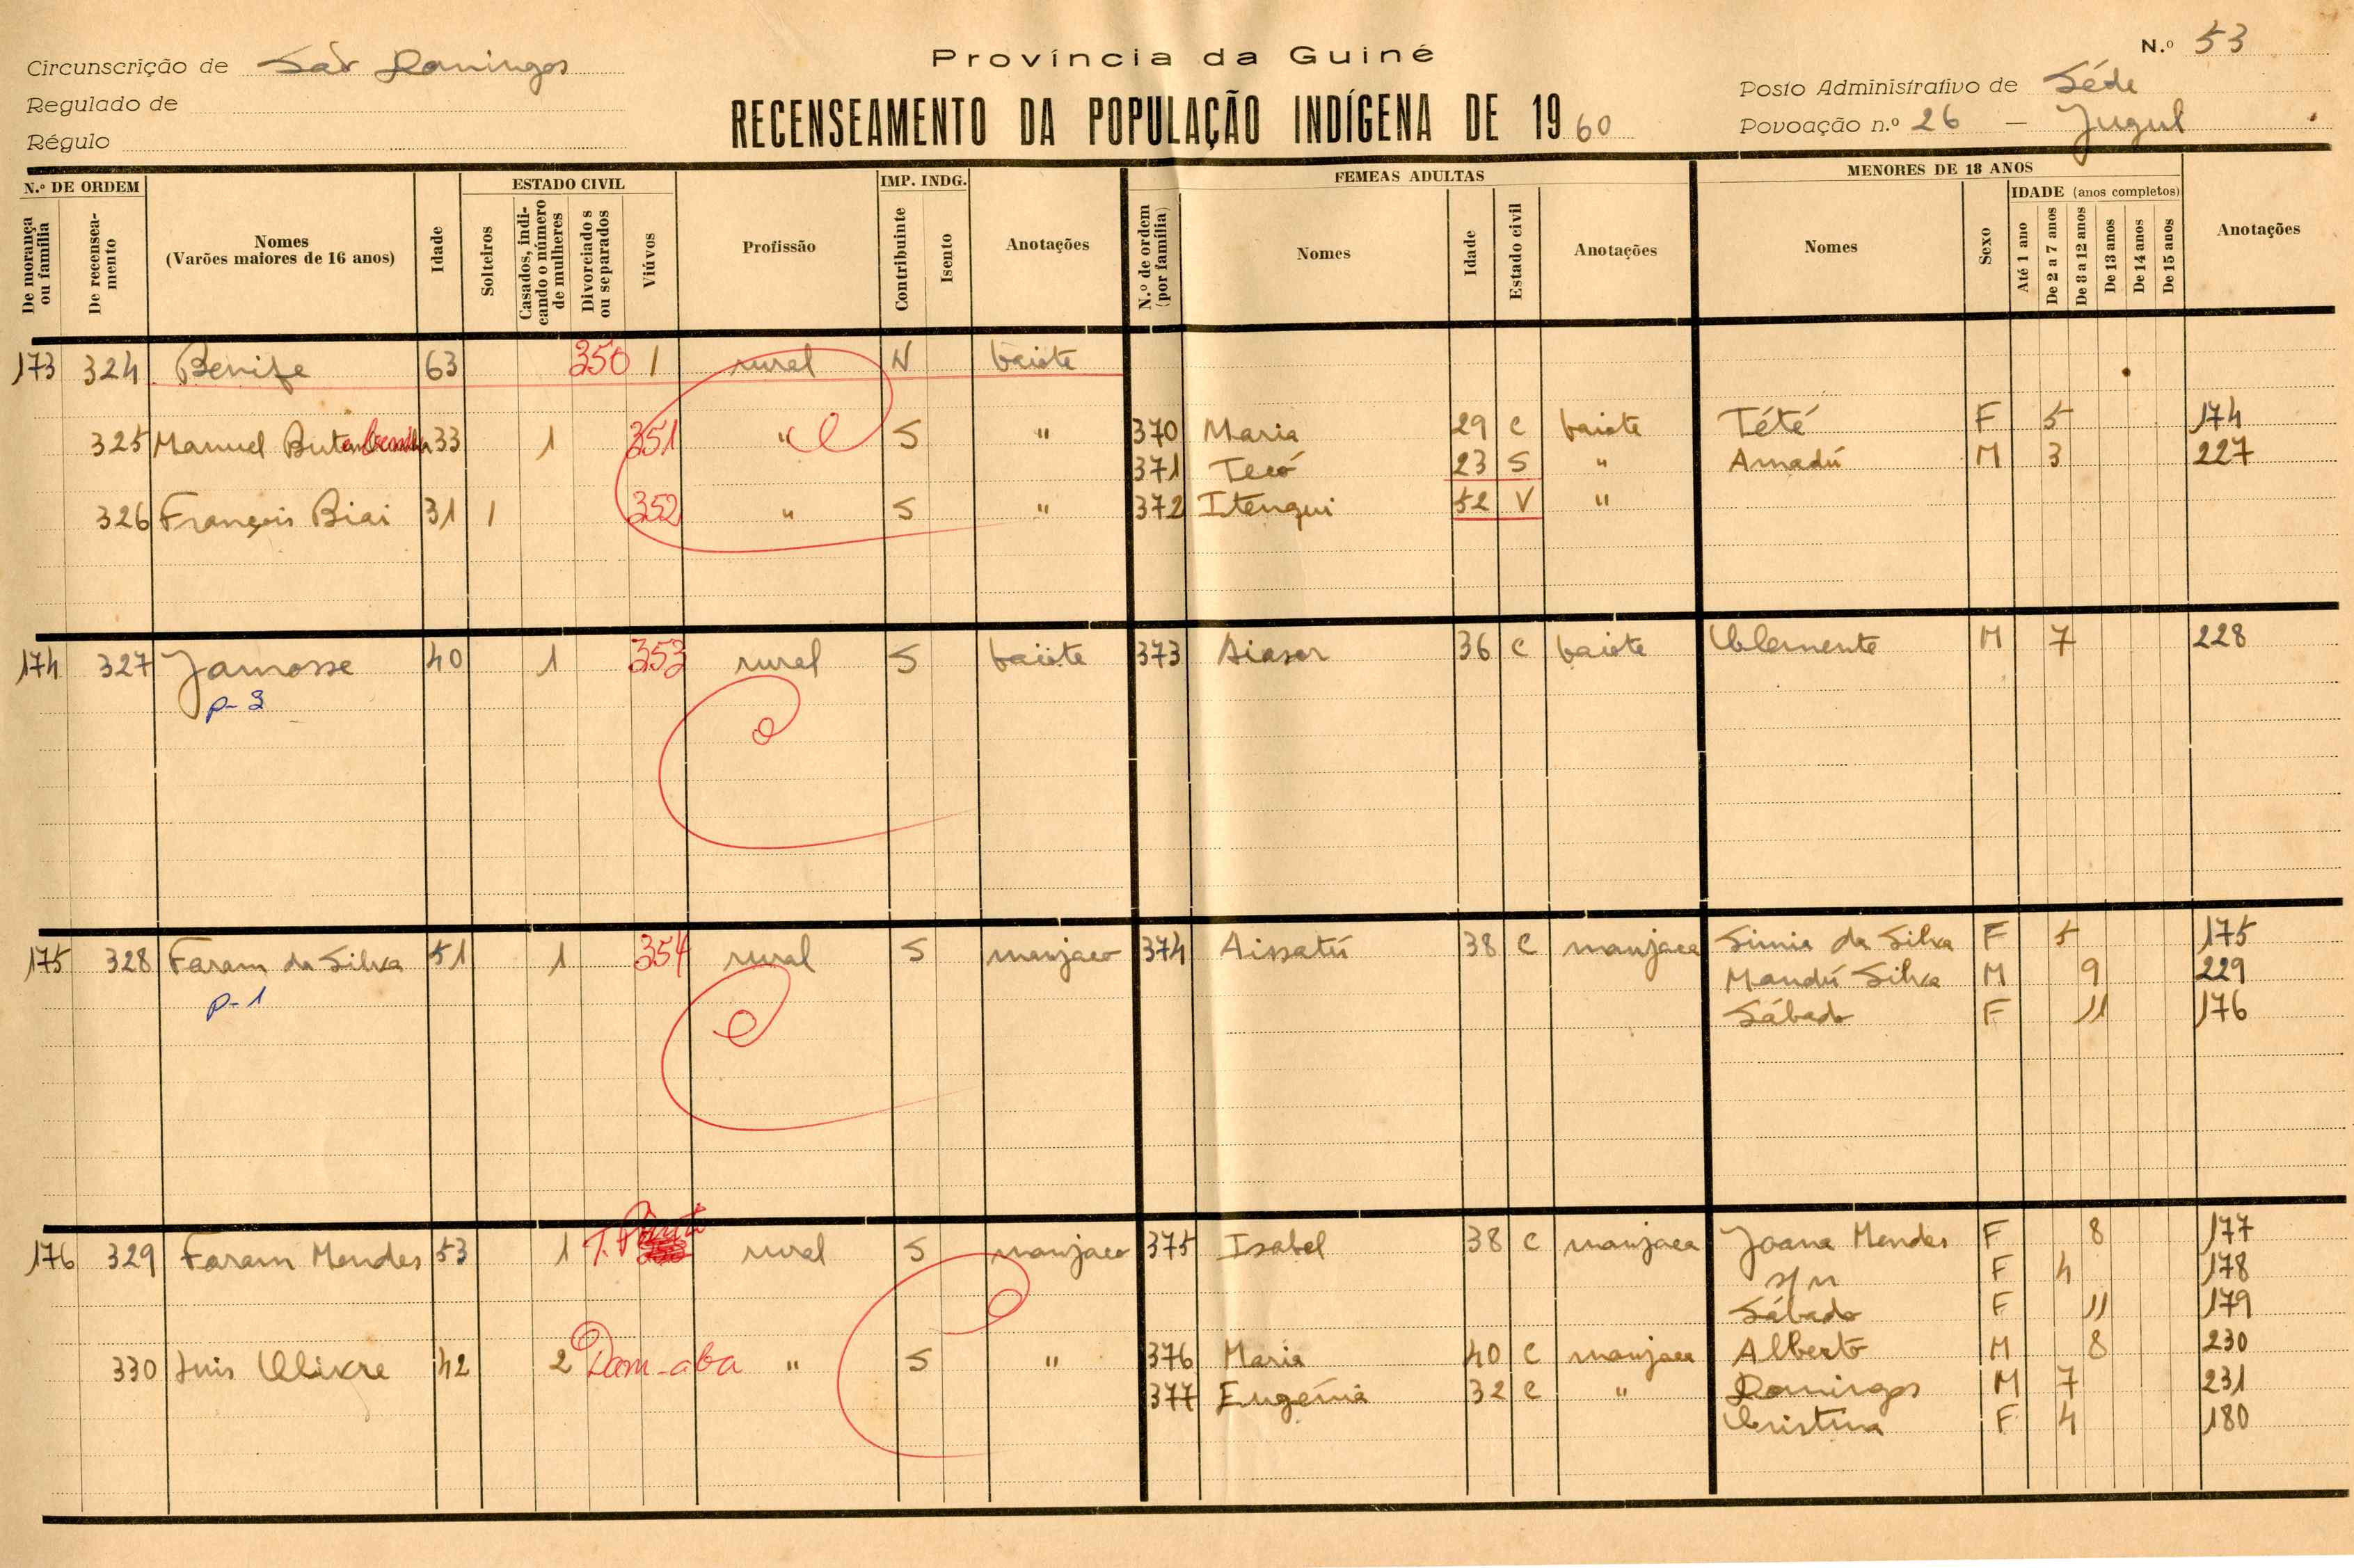 Província da Guiné
N.º 53
Circunscrição de São Domingos
Regulado de
Régulo
RECENSEAMENTO DA POPULAÇÃO INDÍGENA DE 1960
Posto Administrativo de Séde
Povoação n.º 26 — Jugul
N.º DE ORDEM
De morança ou família
De recenseamento
Nomes
(Varões maiores de 16 anos)
Idade
ESTADO CIVIL
Solteiros
Casados, indicando o número de mulheres
Divorciados ou separados
Viúvos
Profissão
IMP. INDG.
Contribuinte
Isento
Anotações
FEMEAS ADULTAS
N.º de ordem (por família)
Nomes
Idade
Estado civil
Anotações
MENORES DE 18 ANOS
Nomes
Sexo
IDADE (anos completos)
Até 1 ano
De 2 a 7 anos
De 8 a 12 anos
De 13 anos
De 14 anos
De 15 anos
Anotações
173 324 63 350 1 rural N baiote
325 Manuel 33 1 351 " S " 370 Maria 29 C baiote Tété F 5 174
371 Tecó 23 S " Amadú M 3 227
326 François Biai 31 1 352 " S " 372 Itengui 52 V "
174 327 Jamosse 40 1 353 rural S baiote 373 Aiasor 36 C baiote Clemente M 7 228
p- 3
175 328 Faram da Silva 51 1 354 rural S manjaco 374 Aissatú 38 C manjaca Simia da Silva F 5 175
Mandú Silva M 9 229
p- 1
Sábado F 11 176
176 329 Faram Mendes 53 1 rural S manjaco 375 Isabel 38 C manjaca Joana Mendes F 8 177
s/n F 4 178
Sábado F 11 179
330 Luis 42 2 Dam-aba " S " 376 Maria 40 C manjaca Alberto M 8 230
377 Eugénia 32 C " Domingos M 7 231
Cristina F 4 180